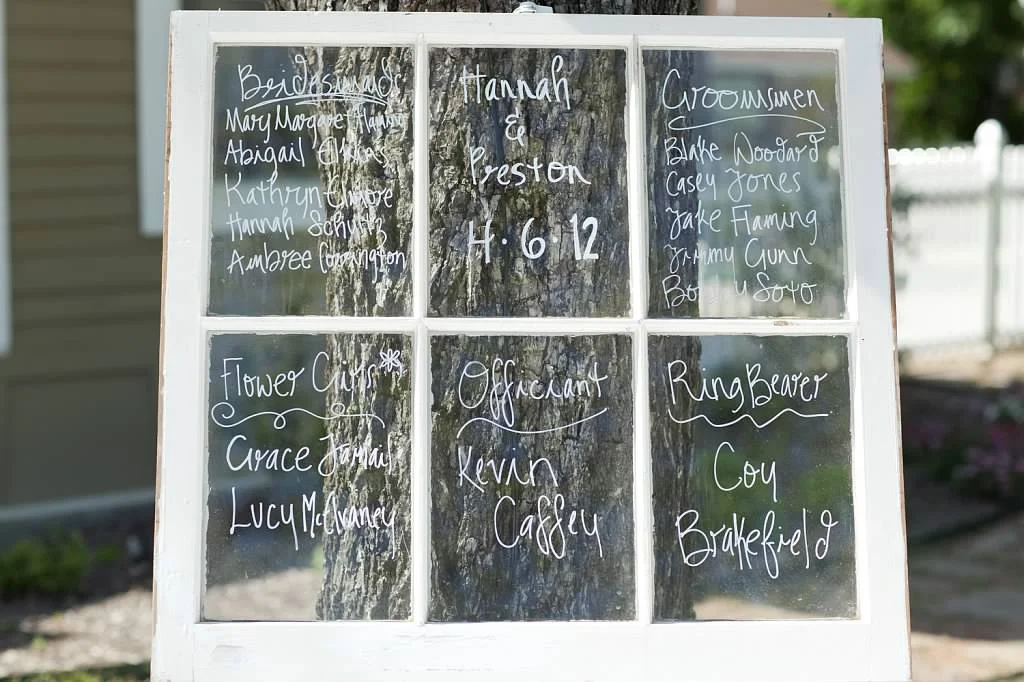 Bridesmaids
Mary Margaret Flaming
Abigail
Kathryn Elmore
Hannah Schultz
Ambree Covington
Hannah
&
Preston
4·6·12
Groomsmen
Blake Woodard
Casey Jones
Jake Flaming
Jimmy Gunn
Soto
Flower Girls
Grace Jamail
Lucy McIlvaney
Officiant
Kevin
Caffey
Ring Bearer
Coy
Brakefield